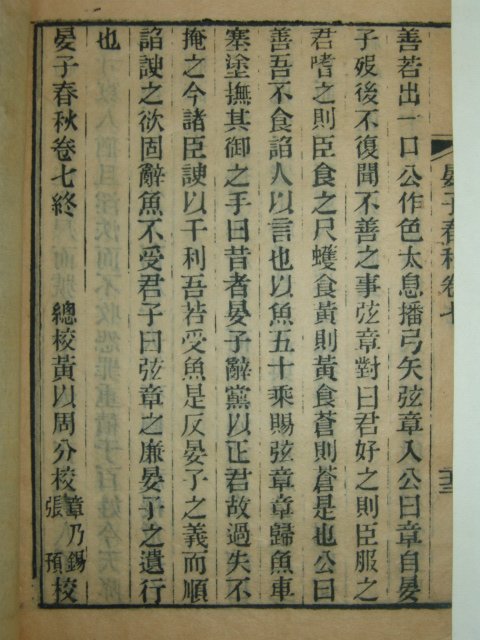 晏子春秋卷七
善若出一口公作色太息播弓矢弦章入公曰章自晏
子歿後不復聞不善之事弦章對曰君好之則臣服之
君嗜之則臣食之尺蠖食黃則黃食蒼則蒼是也公曰
善吾不食諂人以言也以魚五十乘賜弦章章歸魚車
塞塗撫其御之手曰昔者晏子辭黨以正君故過失不
掩之今諸臣諛以干利吾若受魚是反晏子之義而順
諂諛之欲固辭魚不受君子曰弦章之廉晏子之遺行
也
晏子春秋卷七終 總校黃以周分校章乃錫張預校